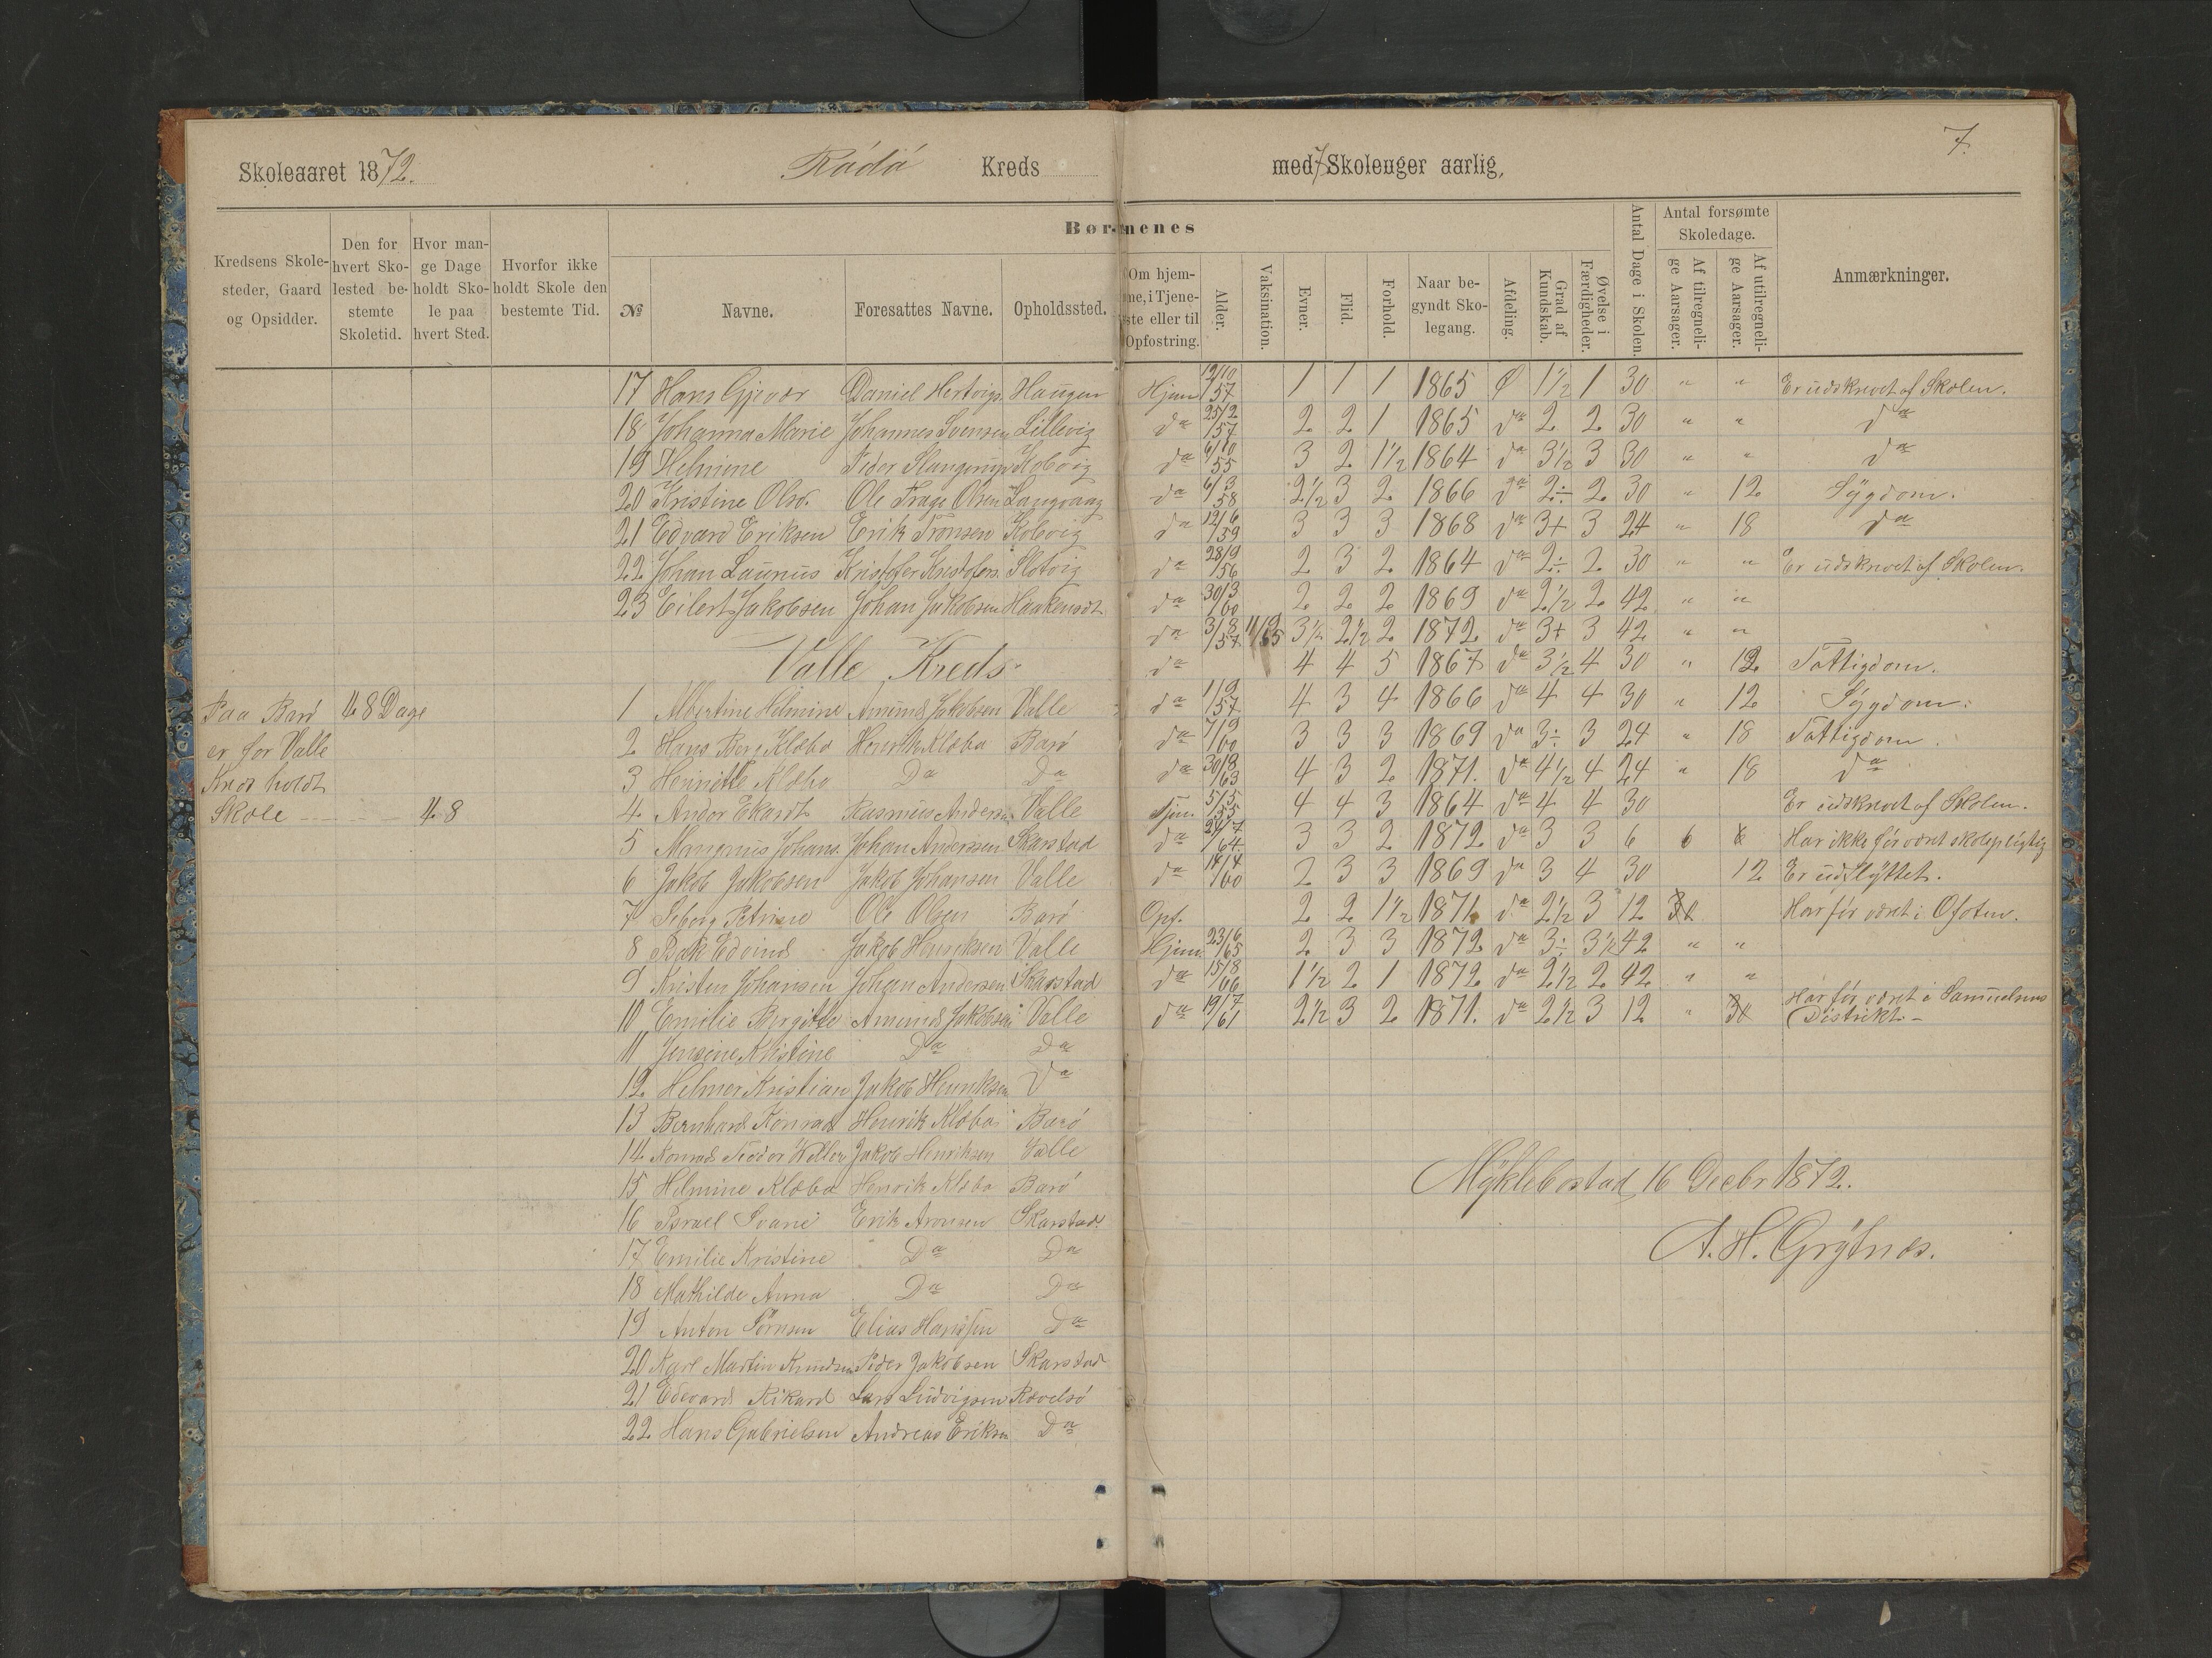 7.
Skoleaaret 1872. Rödö Kreds med 7 Skoleuger aarlig,
Børnenes
Kredsens Skolesteder, Gaard og Opsidder.
Den for hvert Skolested bestemte Skoletid.
Hvor mange Dage holdt Skole paa hvert Sted.
Hvorfor ikke holdt Skole den bestemte Tid.
№
Navne.
Foresattes Navne.
Opholdssted.
Om hjemme, i Tjeneste eller til Opfostring.
Alder.
Vaksination.
Evner.
Flid.
Forhold.
Naar begyndt Skolegang.
Afdeling.
Grad af Kundskab.
Øvelse i Færdigheder.
Antal Dage i Skolen.
Antal forsømte Skoledage.
Af tilregnelige Aarsager.
Af utilregnelige Aarsager.
Anmærkninger.
17 Hans Gjevær Daniel Hertvigs. Haugen Hjem 12/10 57 1 1 1 1865 Ø 1½ 1 30 " " Er udskrevet af Skolen.
18 Johanna Marie Johannes Svensen Lillevig da 25/2 57 2 2 1 1865 da 2 2 30 " " da
19 Helmine Peder Kobvig da 6/10 55 3 2 1½ 1864 da 3½ 3 30 " " da
20 Kristine Olsd. Ole Olsen Langvaag da 6/3 58 2½ 3 2 1866 da 2÷ 2 30 " 12 Sÿgdom.
21 Edvard Eriksen Erik Tronsen Kobvig da 12/6 59 3 3 3 1868 da 3+ 3 24 " 18 da
22 Johan Launus Kristofer Kristofers. Slotvig da 28/9 56 2 3 2 1864 da 2÷ 2 30 " " Er udskrevet af Skolen.
23 Eilert Jakobsen Johan Jakobsen da 30/3 60 2 2 2 1869 da 2½ 2 42 " "
da 3/8 57 11/9 65 3½ 2½ 2 1872 da 3+ 3 42 " "
Valle Kreds. da 4 4 5 1867 da 3½ 4 30 " 12 Fattigdom.
Paa Barö 48 Dage 1 Albertine Helmine Amund Jakobsen Valle da 1/9 57 4 3 4 1866 da 4 4 30 " 12 Sÿgdom.
er for Valle 2 Hans Berg Klæbo Henrik Klæbo Barö da 7/9 60 3 3 3 1869 da 3÷ 3 24 " 18 Fattigdom.
Kreds holdt 3 Henritte Klæbo Da Da da 30/8 63 4 3 2 1871. da 4½ 4 24 " 18 da
Skole 48 4 Andor Ekardt Rasmus Anders. Valle Tjen. 5/5 55 4 4 3 1864 da 4 4 30 Er udskrevet af Skolen.
5 Mangnus Johans. Johan Anderssen Skarstad da 24/7 64 3 3 2 1872 da 3 3 6 6 6 Har ikke för været skolepligtig
6 Jakob Jakobsen Jakob Johansen Valle da 14/4 60 2 3 3 1869 da 3 4 30 12 Er udflÿttet.
7 Petrine Ole Olsen Barö Opf. 2 2 1½ 1871. da 2½ 3 12 30 Har för været i Ofoten.
8 Isak Edvind Jakob Henriksen Valle Hjem. 23/6 65 2 3 3 1872 da 3÷ 3½ 42 " "
9 Kristen Johansen Johan Andersen Skarstad da 15/8 66 1½ 2 1 1872 da 2½ 2 42 " "
10 Emilie Birgitte Amund Jakobsen Valle da 19/7 61 2½ 3 2 1871. da 2½ 3 12 " 30 Har för været i Samuelsens Distrikt.
11 Jensine Kristine Da Da
12 Helmer Kristian Jakob Henriksen Da
13 Bernhard Konrad Henrik Klæbo Barö
14 Konrad Teodor Jakob Henriksen Valle
15 Helmine Klæbo Henrik Klæbo Barö
16 Israel Svane Erik Aronsen Skarstad.
17 Emilie Kristine Da Da
18 Mathilde Anna Da Da
19 Anton Elias Hanssen Da
20 Karl Martin Knudsen Peder Jakobsen Skarstad
21 Edevard Rikard Lars Ludvigsen Rævelsö
22 Hans Gabrielsen Andreas Eriksen Da
Mÿklebostad 16 Decbr 1872.
A. H. Grÿtnæs.